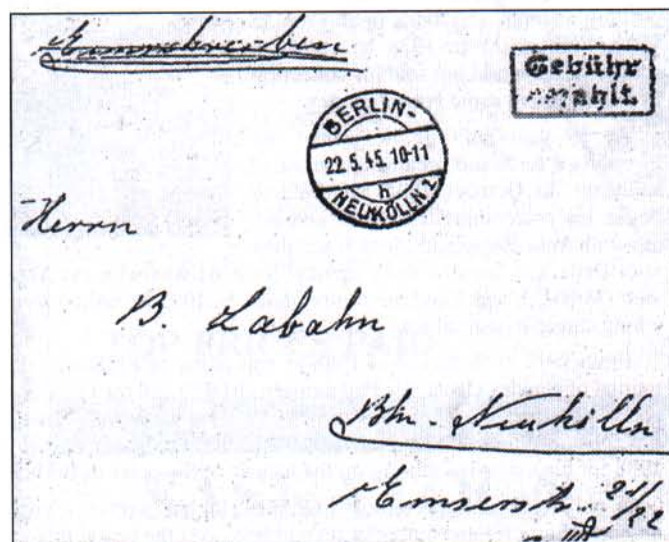 Einschreiben
Gebühr
zahlt.
BERLIN-
22.5.45.10-11
h
NEUKÖLLN 1
Herrn
B. Labahn
Bln.-Neukölln
Emserstr. 21/22